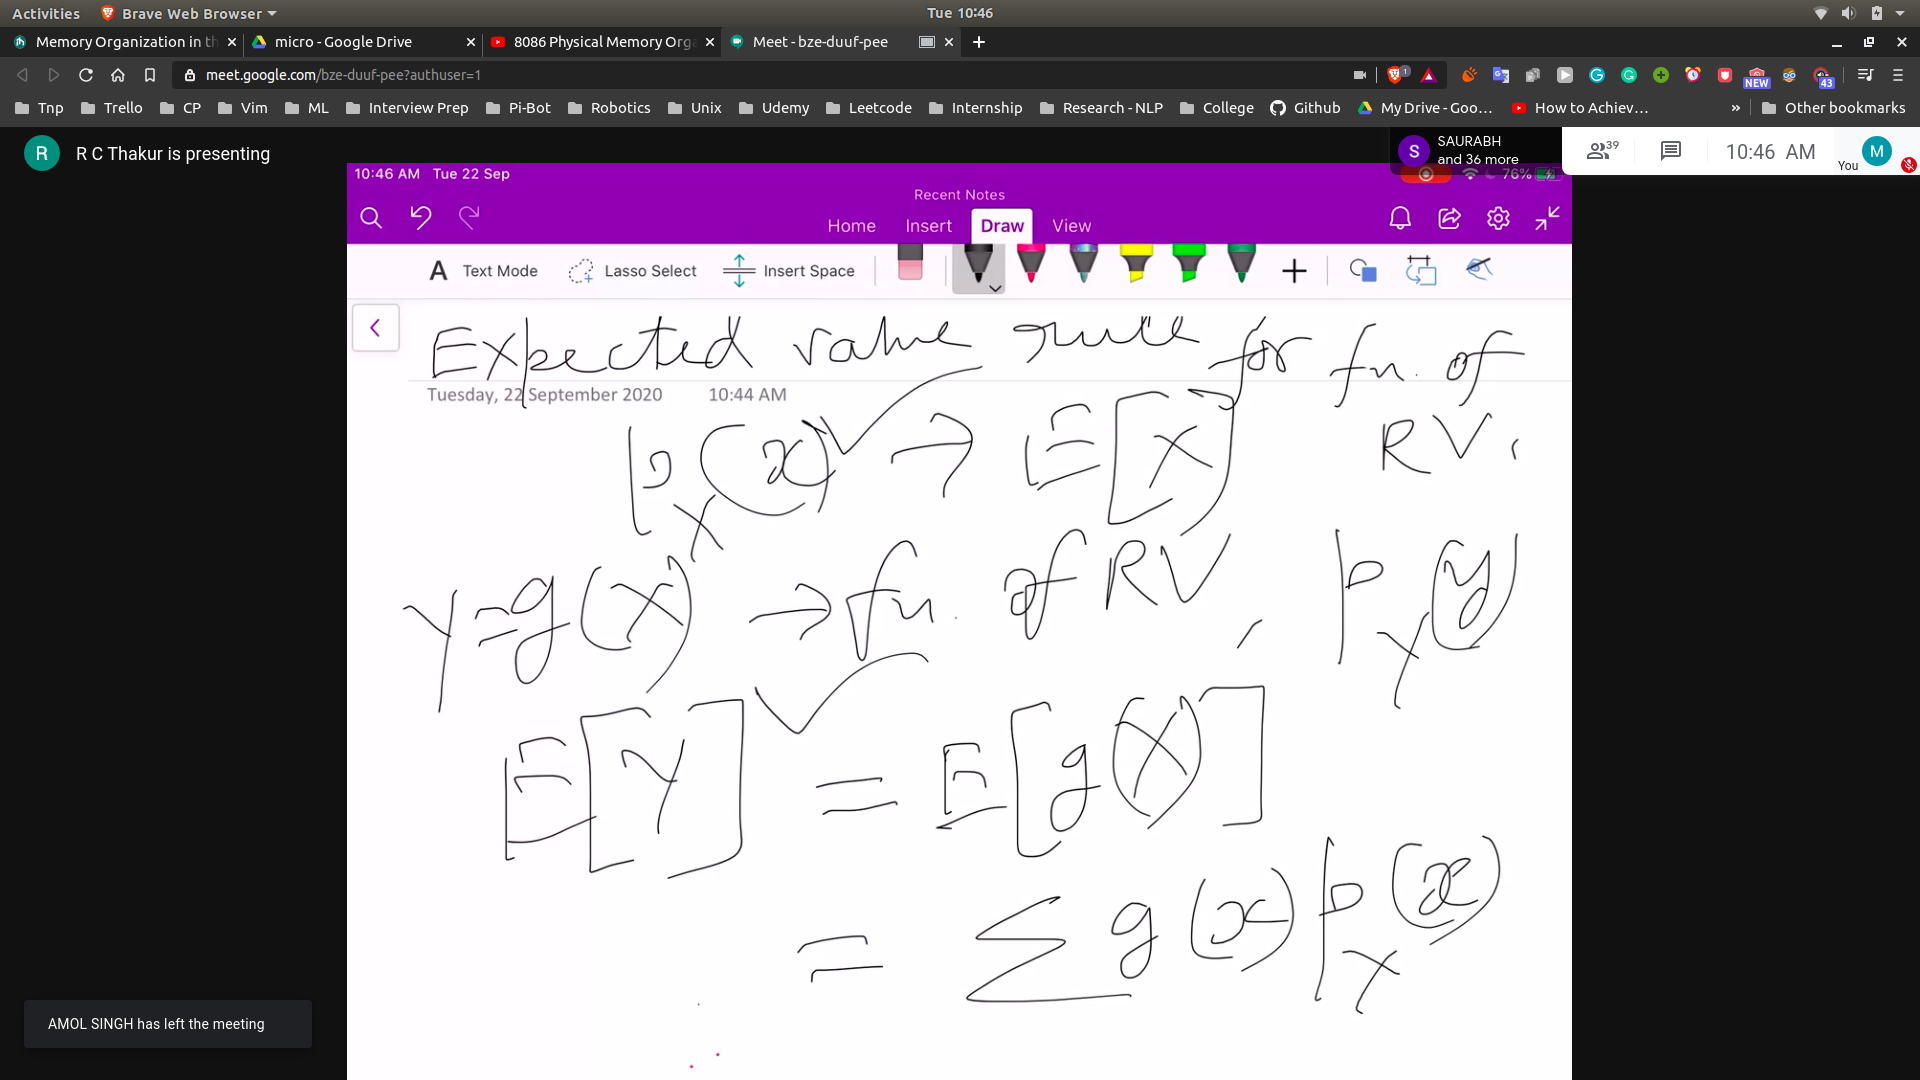 Activities Brave Web Browser Tue 10:46
Memory Organization in th micro - Google Drive 8086 Physical Memory Orga Meet - bze-duuf-pee
meet.google.com/bze-duuf-pee?authuser=1 1 NEW 43
Tnp Trello CP Vim ML Interview Prep Pi-Bot Robotics Unix Udemy Leetcode Internship Research - NLP College Github My Drive - Goo… How to Achiev… » Other bookmarks
R R C Thakur is presenting
S SAURABH and 36 more 39 10:46 AM You M
10:46 AM Tue 22 Sep 76%
Recent Notes
Home Insert Draw View
A Text Mode Lasso Select Insert Space
Expected value rule for fn. of
Tuesday, 22 September 2020 10:44 AM
RV.
p_X(x) → E[X]
Y=g(X) → fn. of RV, p_Y(y)
E[Y] = E[g(X)]
= Σ g(x) p_X(x)
AMOL SINGH has left the meeting